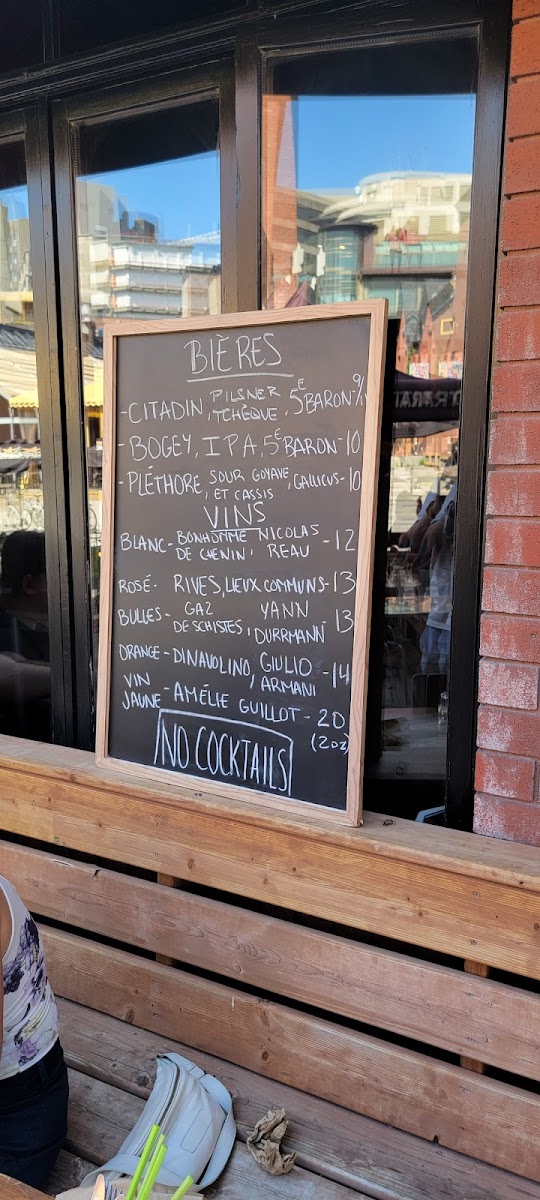 BIÈRES
- CITADIN, PILSNER TCHÈQUE, 5E BARON-9
- BOGEY, IPA, 5E BARON-10
- PLÉTHORE SOUR GOYAVE ET CASSIS, GALLICUS-10
VINS
BLANC - BONHOMME NICOLAS
DE CHENIN, REAU - 12
ROSÉ - RIVES, LIEUX COMMUNS - 13
BULLES - GAZ YANN
DE SCHISTES, DURRMANN - 13
ORANGE - DINAVOLINO, GIULIO
ARMANI - 14
VIN
JAUNE - AMÉLIE GUILLOT - 20
(2oz)
NO COCKTAILS